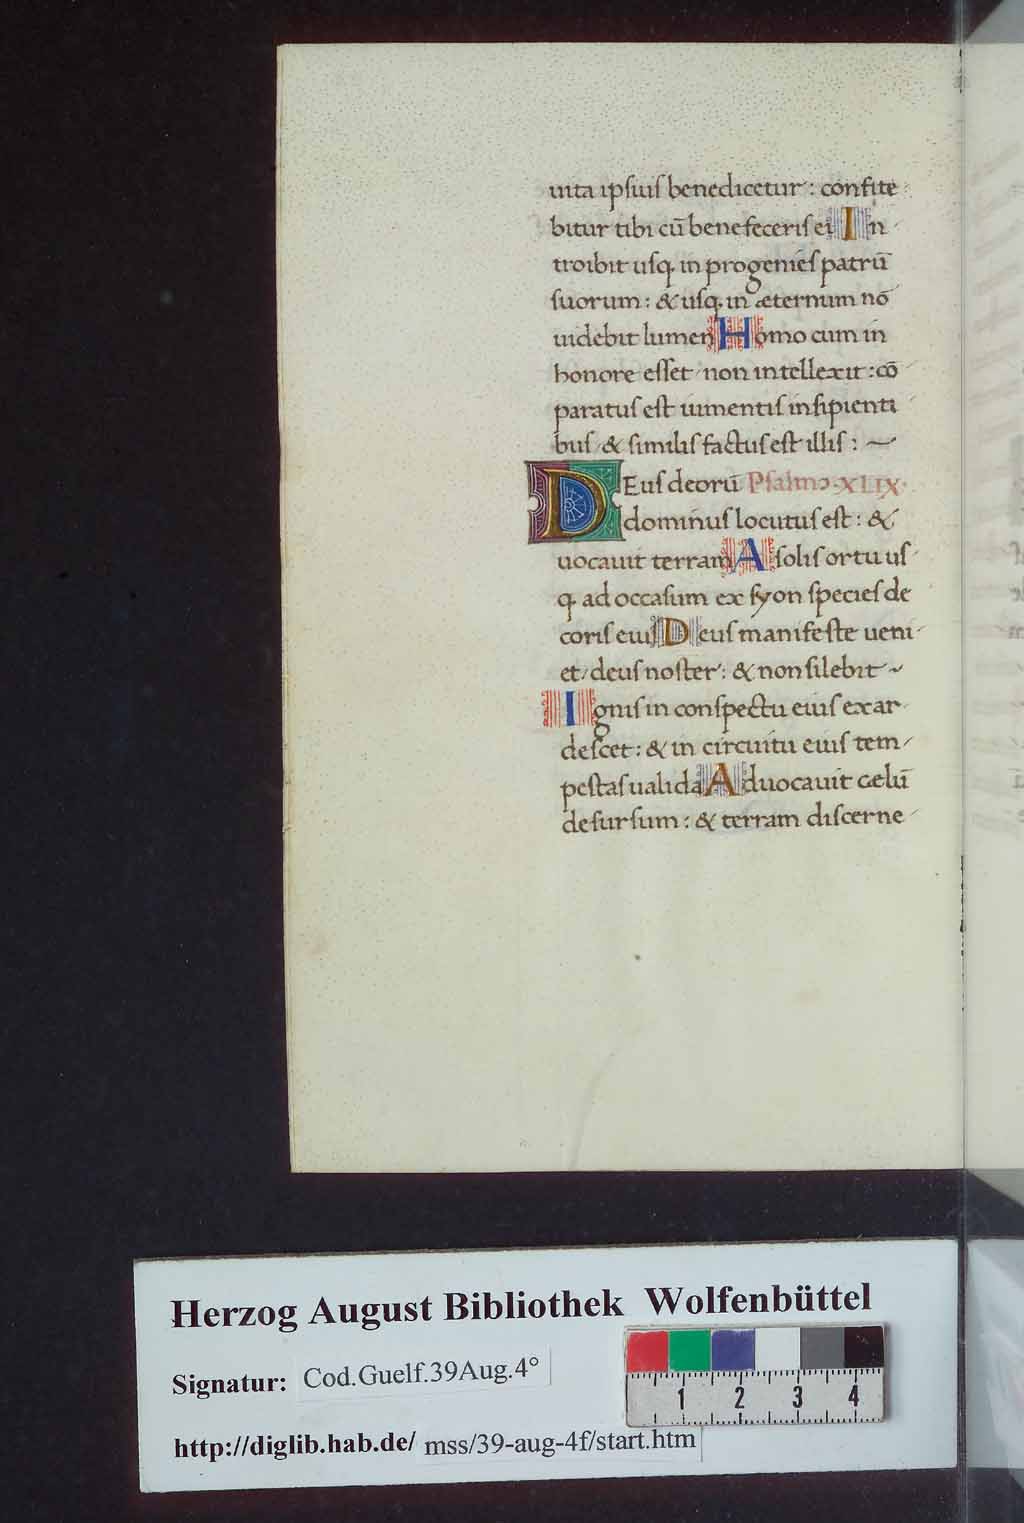 uita ipsius benedicetur : confite
bitur tibi cū benefeceris ei In
troibit usq, in progenies patrū
suorum : & usq, in æternum nō
uidebit lumen Homo cum in
honore esset non intellexit : cō
paratus est iumentis insipienti
bus & similis factus est illis : ~
DEus deorū Psalmo XLIX.
dominus locutus est : &
uocauit terram A solis ortu us
q, ad occasum ex syon species de
coris eius Deus manifeste ueni
et / deus noster : & non silebit ~
Ignis in conspectu eius exar
descet : & in circuitu eius tem
pestas ualida Aduocauit celū
desursum : & terram discerne
Herzog August Bibliothek Wolfenbüttel
Signatur: Cod.Guelf.39Aug.4°
http://diglib.hab.de/ mss/39-aug-4f/start.htm
1 2 3 4